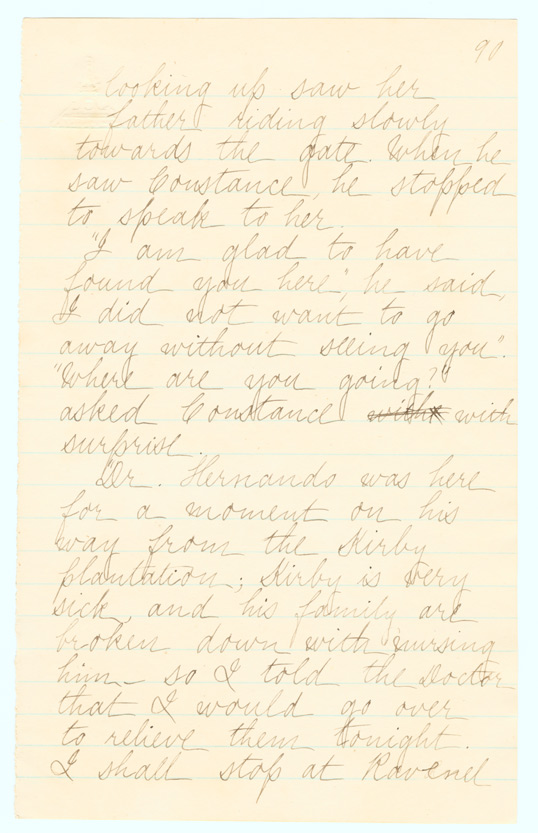 90
looking up saw her
father riding slowly
towards the gate. When he
saw Constance, he stopped
to speak to her.
"I am glad to have
found you here", he said,
I did not want to go
away without seeing you".
"Where are you going?"
asked Constance with
surprise.
"Dr. Hernando was here
for a moment on his
way from the Kirby
plantation; Kirby is very
sick, and his family are
broken down with nursing
him – so I told the Doctor
that I would go over
to relieve them tonight.
I shall stop at Ravenel